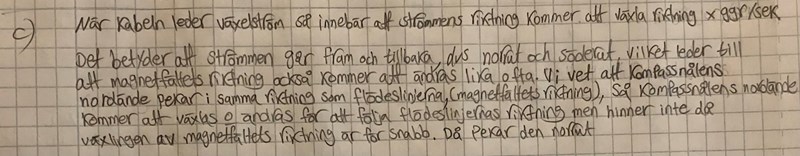 c) När kabeln leder växelström så innebär att strömmens riktning kommer att växla riktning x ggr/sek.
Det betyder att strömmen går fram och tillbaka, dvs norråt och söderåt, vilket leder till
att magnetfältets riktning också kommer att ändras lika ofta. Vi vet att kompassnålens
nordände pekar i samma riktning som flödeslinjerna, (magnetfältets riktning), så kompassnålens nordände
kommer att växlas o ändras för att följa flödeslinjernas riktning men hinner inte då
växlingen av magnetfältets riktning är för snabb. Då pekar den norråt